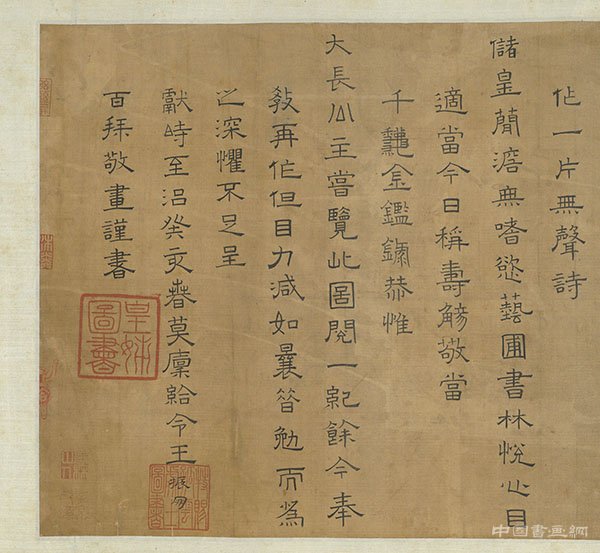 作一片無聲詩
儲皇簡澹無嗜慾藝圃書林悅心目
適當今日稱壽觴敬當
千龝金鑑錄恭惟
大長公主嘗覽此圖閱一紀餘今奉
教再作但目力減如曩昔勉而為
之深懼不足呈
獻時至治癸亥春莫廩給令王振朋
百拜敬畫謹書
皇姊圖書
中国書画網